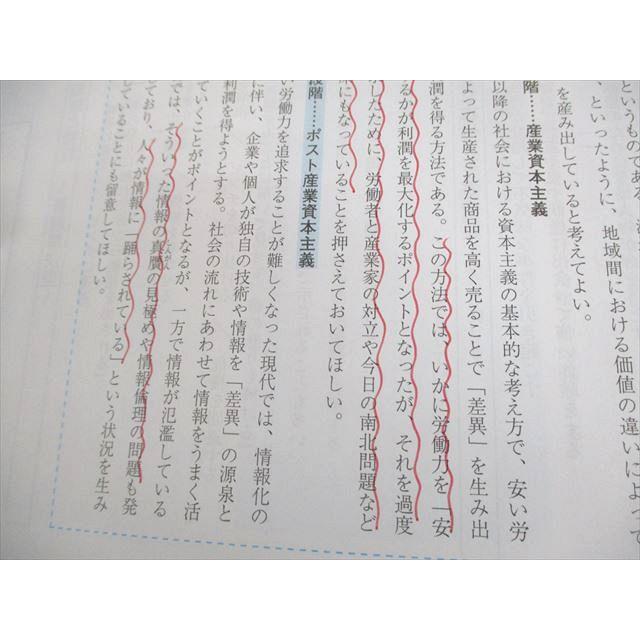 というものであ
、といったように、地域間における価値の違いによって
を産み出していると考えてよい。
階……産業資本主義
以降の社会における資本主義の基本的な考え方で、安い労
よって生産された商品を高く売ることで「差異」を生み出
潤を得る方法である。この方法では、いかに労働力を「安
るかが利潤を最大化するポイントとなったが、それを過度
したために、労働者と産業家の対立や今日の南北問題など
にもなっていることを押さえておいてほしい。
段階……ポスト産業資本主義
い労働力を追求することが難しくなった現代では、情報化の
に伴い、企業や個人が独自の技術や情報を「差異」の源泉と
利潤を得ようとする。社会の流れにあわせて情報をうまく活
ていくことがポイントとなるが、一方で情報が氾濫している
では、そういった情報の真贋の見極めや情報倫理の問題も発
しており、人々が情報に「踊らされている」という状況を生み
していることにも留意してほしい。